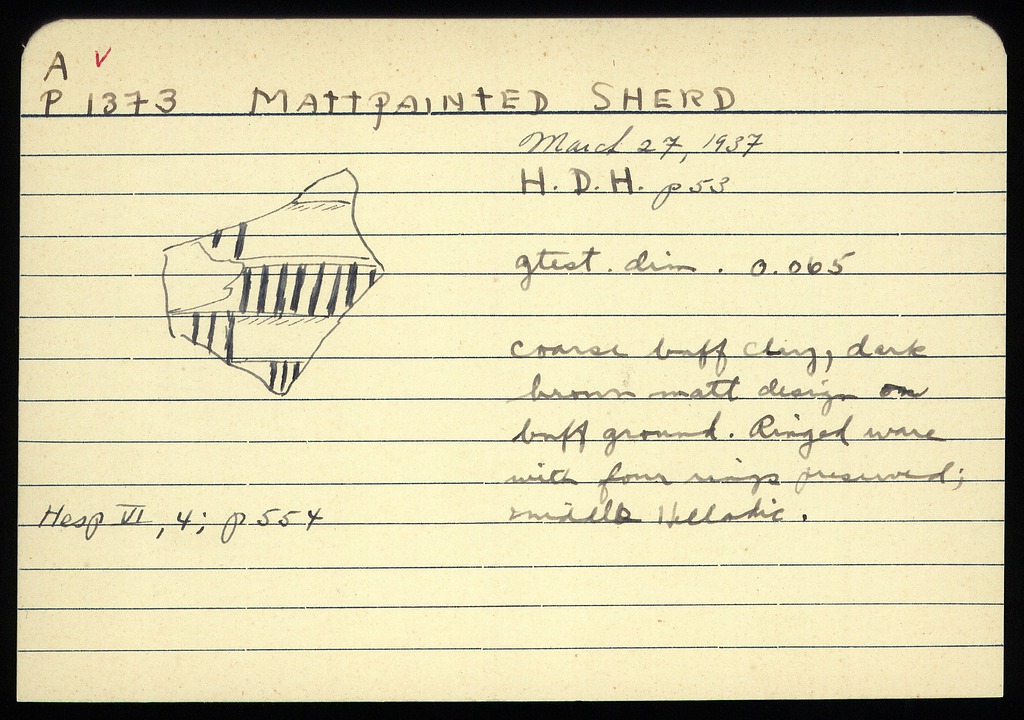 A ✓
P 1373 MATTPAINTED SHERD
March 27, 1937
H. D. H. p 53
gtest. dim. 0.065
coarse buff clay, dark
brown matt design on
buff ground. Ringed ware
with four rings preserved;
middle Helladic.
Hesp VI, 4; p 554